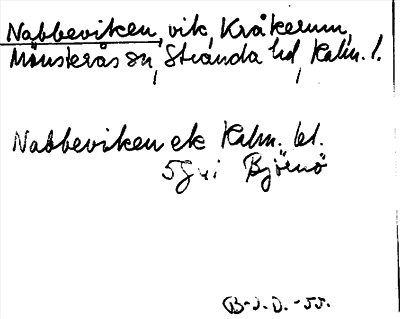 Nabbeviken, vik, Kråkerum,
Mönsterås sn, Stranda hd, Kalm. l.
Nabbeviken ek Kalm. bl.
5G Björnö
B-J.D.-55.